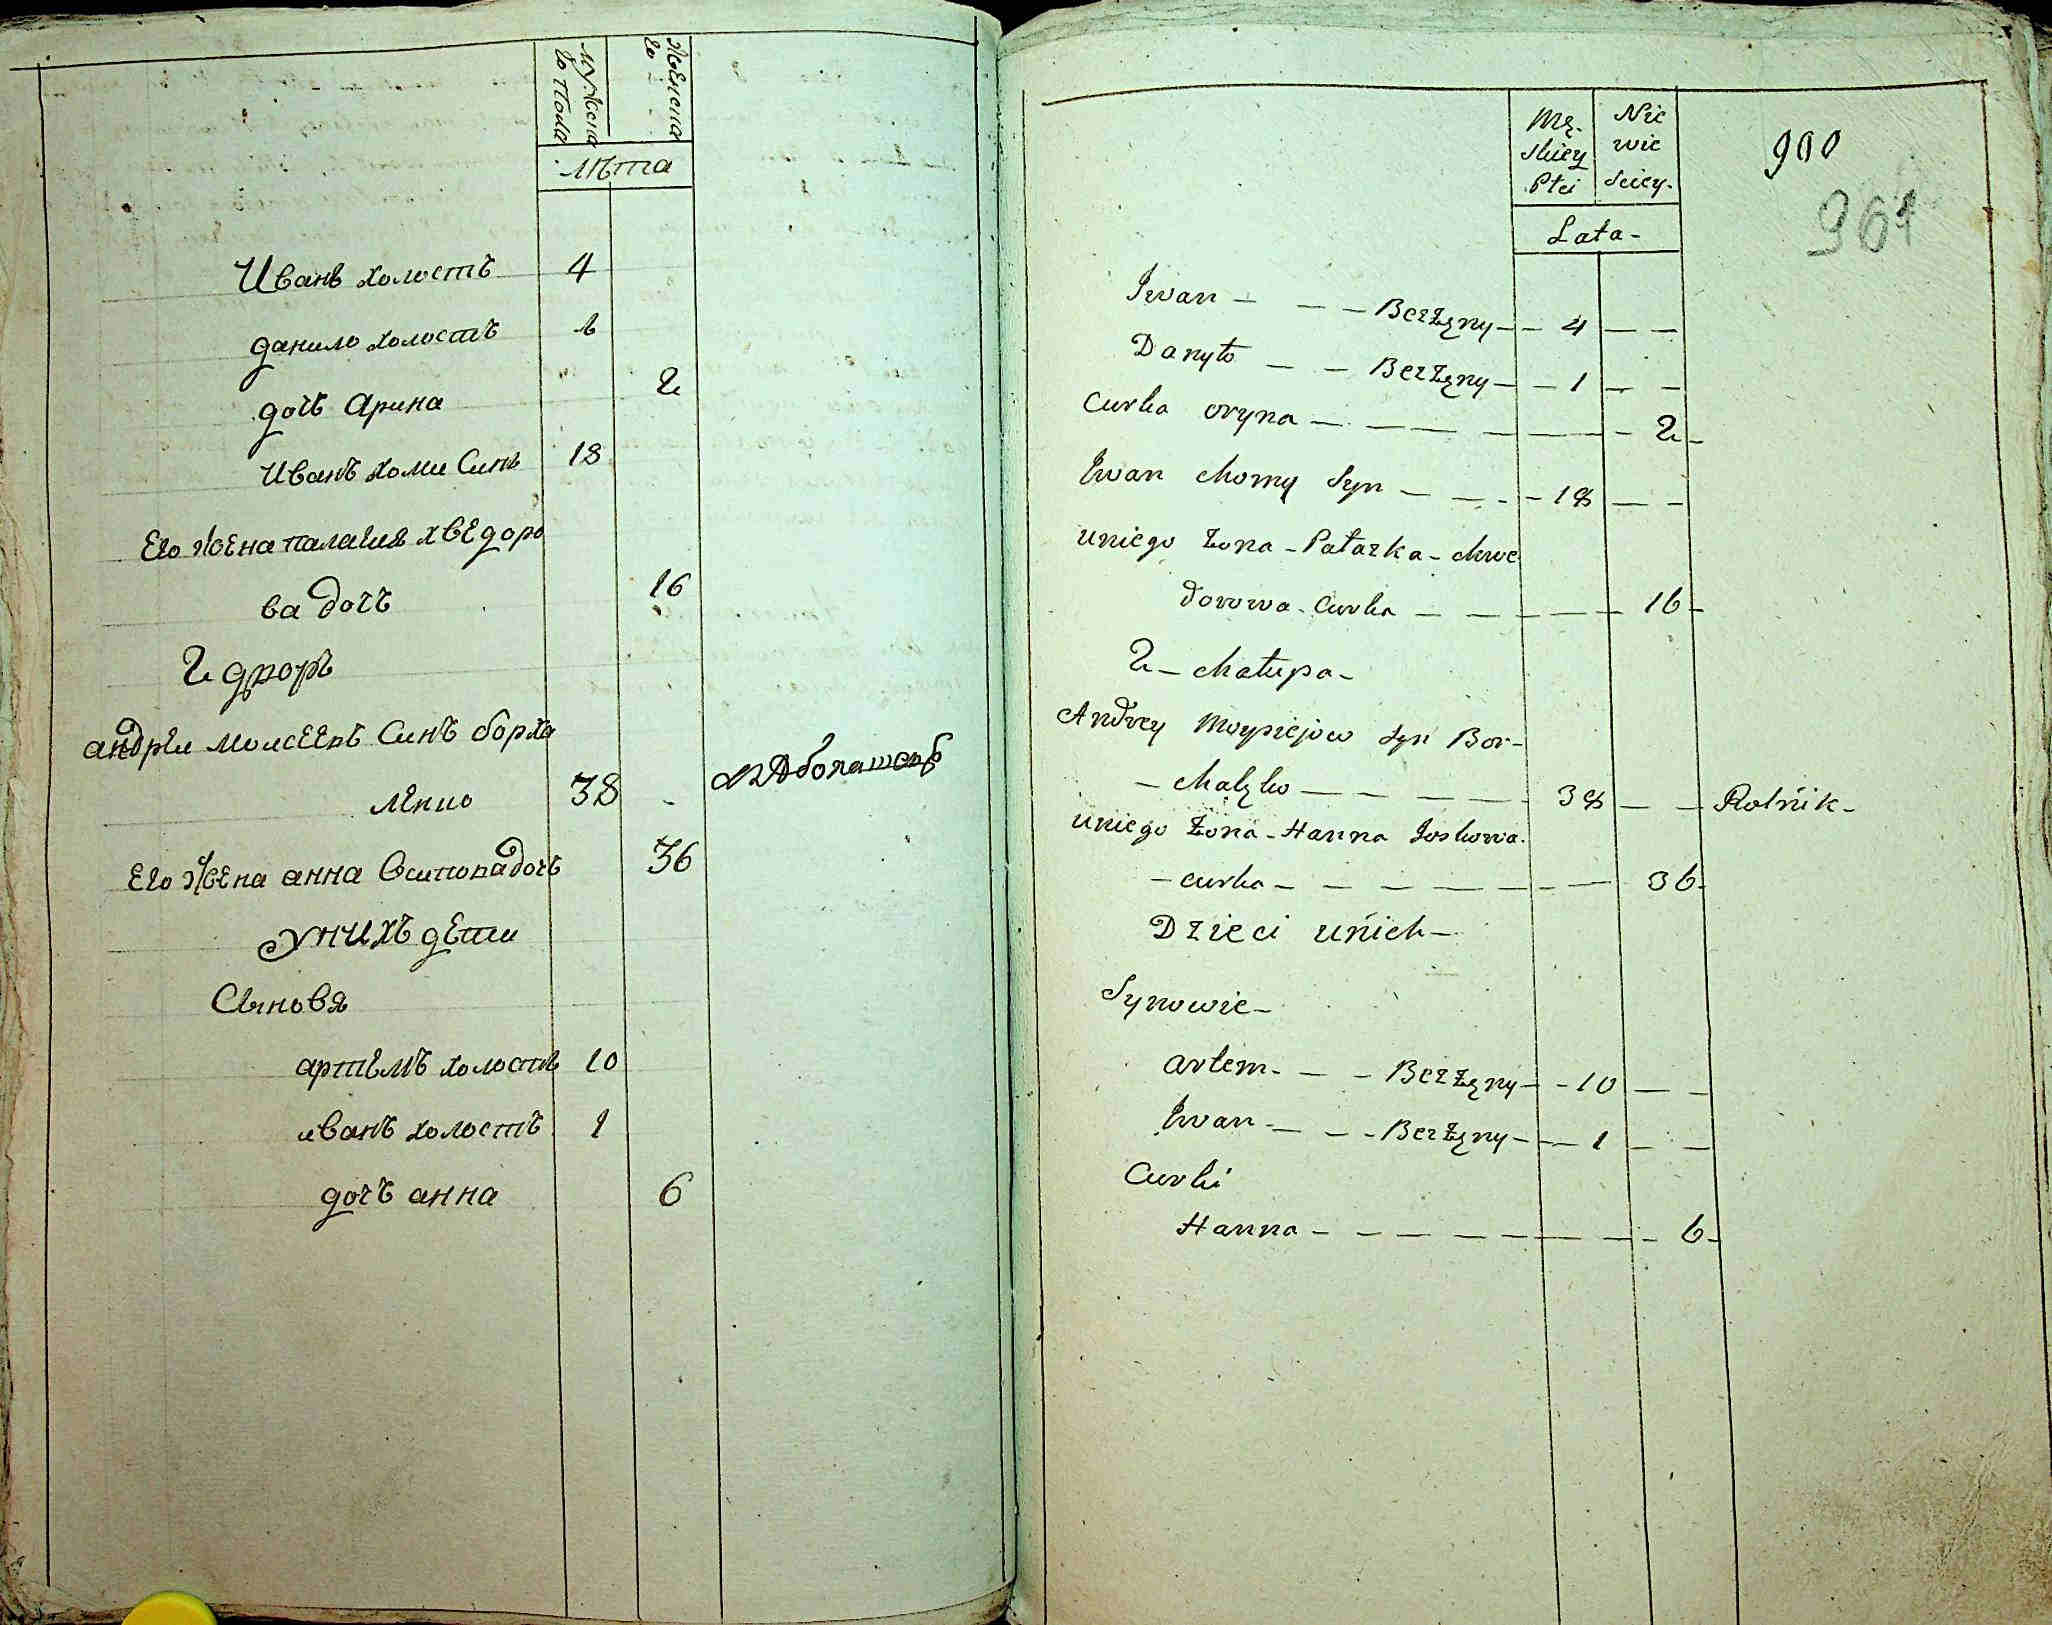 мужска
го пола
женска
го
лѣта
Иванъ холостъ 4
данило холостъ 1
дочь арина 2
Иванъ хоми Синъ 18
Его жена палагия хведоро
ва дочь 16
2 дворъ
андреи моисеевъ Синъ борха
ленко 38
Его жена анна Осипова дочь 36
у них дети
Сыновя
артемъ холостъ 10
иванъ холостъ 1
дочь анна 6
Mę-
skiey
Płci
Nie
wie
sciey
Lata
900
961
Iwan Bezżęny 4
Danyło Bezżęny 1
Curka oryna 2
Iwan Chomy Syn 18
uniego Żona Pałazka Chwe
dorowa Curka 16
2 Chałupa
Andrey Moysiejow Syn Bor-
chalęko 38 Rolnik
uniego Żona Hanna Joskowa
curka 36
Dzieci unich
Synowie
artem Bezżęny 10
Iwan Bezżęny 1
Curki
Hanna 6